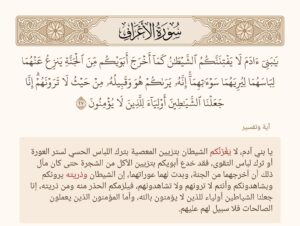 سُورَةُ الأَعْرَافِ
يَٰبَنِىٓ ءَادَمَ لَا يَفْتِنَنَّكُمُ ٱلشَّيْطَٰنُ كَمَآ أَخْرَجَ أَبَوَيْكُم مِّنَ ٱلْجَنَّةِ يَنزِعُ عَنْهُمَا
لِبَاسَهُمَا لِيُرِيَهُمَا سَوْءَٰتِهِمَآ إِنَّهُۥ يَرَىٰكُمْ هُوَ وَقَبِيلُهُۥ مِنْ حَيْثُ لَا تَرَوْنَهُمْ إِنَّا
جَعَلْنَا ٱلشَّيَٰطِينَ أَوْلِيَآءَ لِلَّذِينَ لَا يُؤْمِنُونَ ٢٧
آية وتفسير
يا بني آدم، لا يغرّنكم الشيطان بتزيين المعصية بترك اللباس الحسي لستر العورة
أو ترك لباس التقوى، فقد خدع أبويكم بتزيين الأكل من الشجرة حتى كان مآل
ذلك أن أخرجهما من الجنة، وبدت لهما عوراتهما، إن الشيطان وذريته يرونكم
ويشاهدونكم وأنتم لا ترونهم ولا تشاهدونهم، فيلزمكم الحذر منه ومن ذريته، إنا
جعلنا الشياطين أولياء للذين لا يؤمنون بالله، وأما المؤمنون الذين يعملون
الصالحات فلا سبيل لهم عليهم.